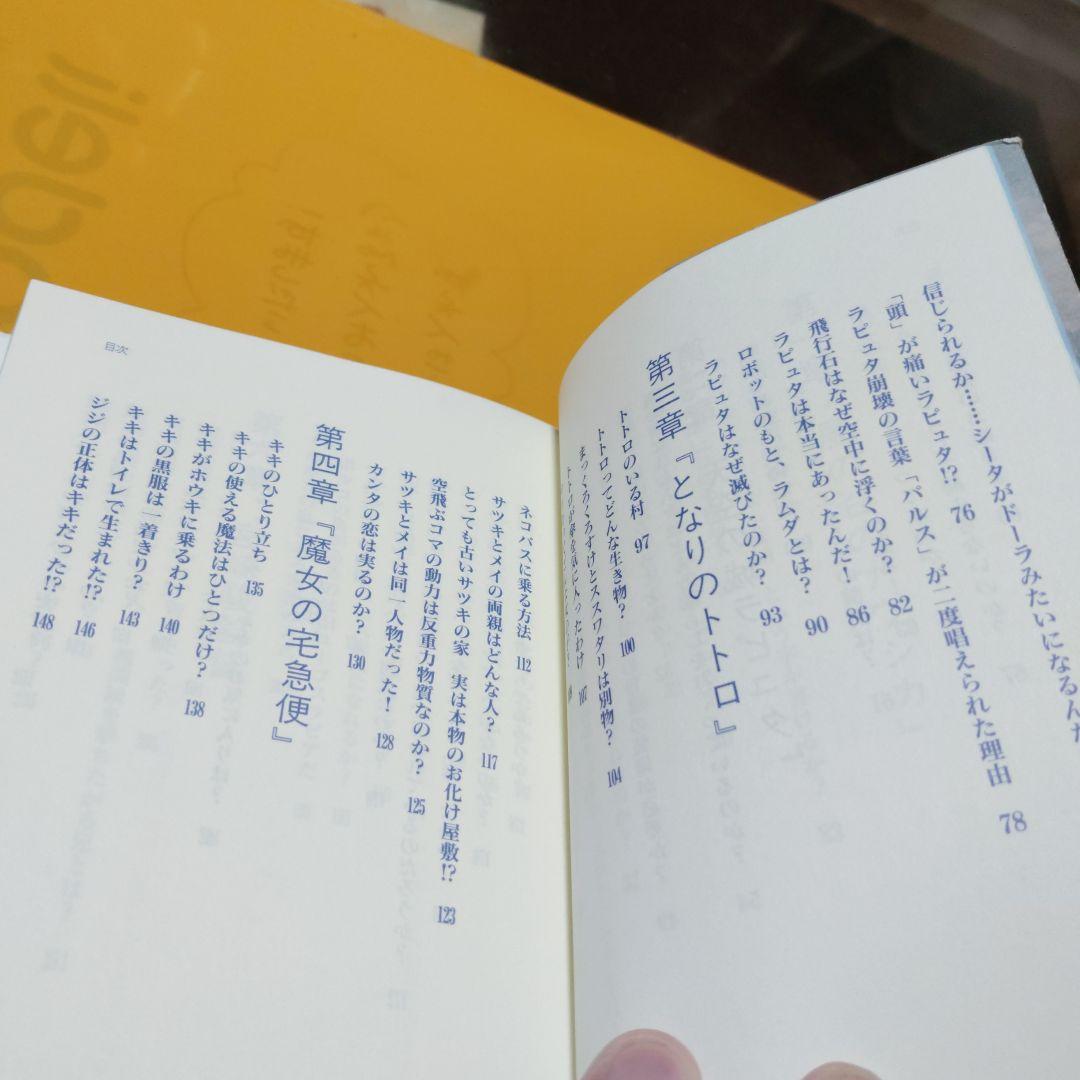 信じられるか……シータがドーラみたいになるんだ
「頭」が痛いラピュタ!? 76
ラピュタ崩壊の言葉「バルス」が二度唱えられた理由 78
飛行石はなぜ空中に浮くのか? 82
ラピュタは本当にあったんだ! 86
ロボットのもと、ラムダとは? 90
ラピュタはなぜ滅びたのか? 93
第三章『となりのトトロ』
トトロのいる村 97
トトロってどんな生き物? 100
まっくろくろすけとススワタリは別物? 104
トトロが傘を気に入ったわけ 107
ネコバスに乗る方法 112
サツキとメイの両親はどんな人? 117
とっても古いサツキの家 実は本物のお化け屋敷!? 123
空飛ぶコマの動力は反重力物質なのか? 125
サツキとメイは同一人物だった! 128
カンタの恋は実るのか? 130
第四章『魔女の宅急便』
キキのひとり立ち 135
キキの使える魔法はひとつだけ? 138
キキがホウキに乗るわけ 140
キキの黒服は一着きり? 143
キキはトイレで生まれた!? 146
ジジの正体はキキだった!? 148
目次